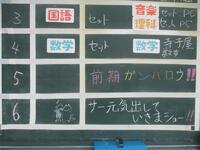 3 国語 セット 音楽 セット、PC
理科 セット PC
4 数学 セット 数学 寺子屋
5 前期ガンバロウ!!
6 サー元気出して
いきまショー!!